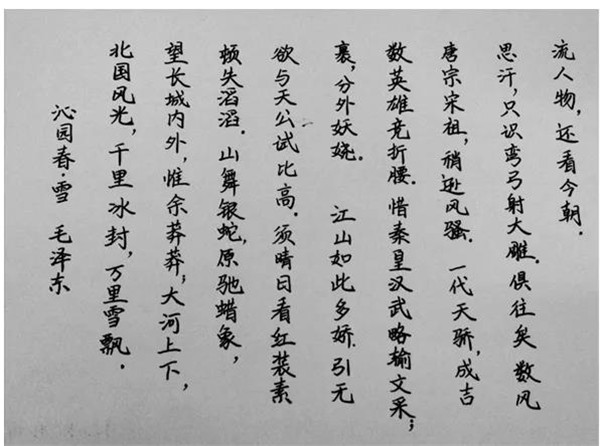 沁园春·雪 毛泽东
北国风光，千里冰封，万里雪飘．
望长城内外，惟余莽莽；大河上下，
顿失滔滔．山舞银蛇，原驰蜡象，
欲与天公试比高．须晴日看红装素
裹，分外妖娆． 江山如此多娇．引无
数英雄竞折腰．惜秦皇汉武略输文采；
唐宗宋祖，稍逊风骚．一代天骄，成吉
思汗，只识弯弓射大雕．俱往矣 数风
流人物，还看今朝．